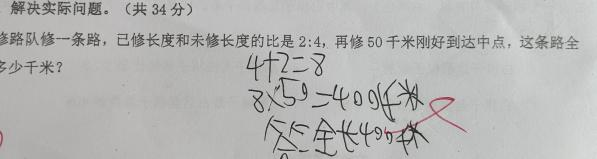 解决实际问题。（共 34 分）
修路队修一条路，已修长度和未修长度的比是 2:4，再修 50 千米刚好到达中点，这条路全
多少千米？
4+2=8
8×50=400千米
答:全长400千米